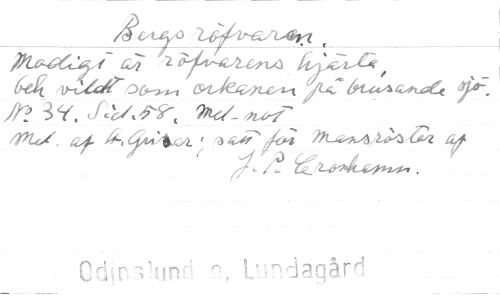 Bergsröfvaren.
Modigt är röfvarens hjärta,
och vildt som orkanen på brusande sjö.
No 34. Sid. 58. Mel-not
Mel. af A. Grisar; satt för mansröster af
J. P. Cronhamn.
Odinslund o, Lundagård